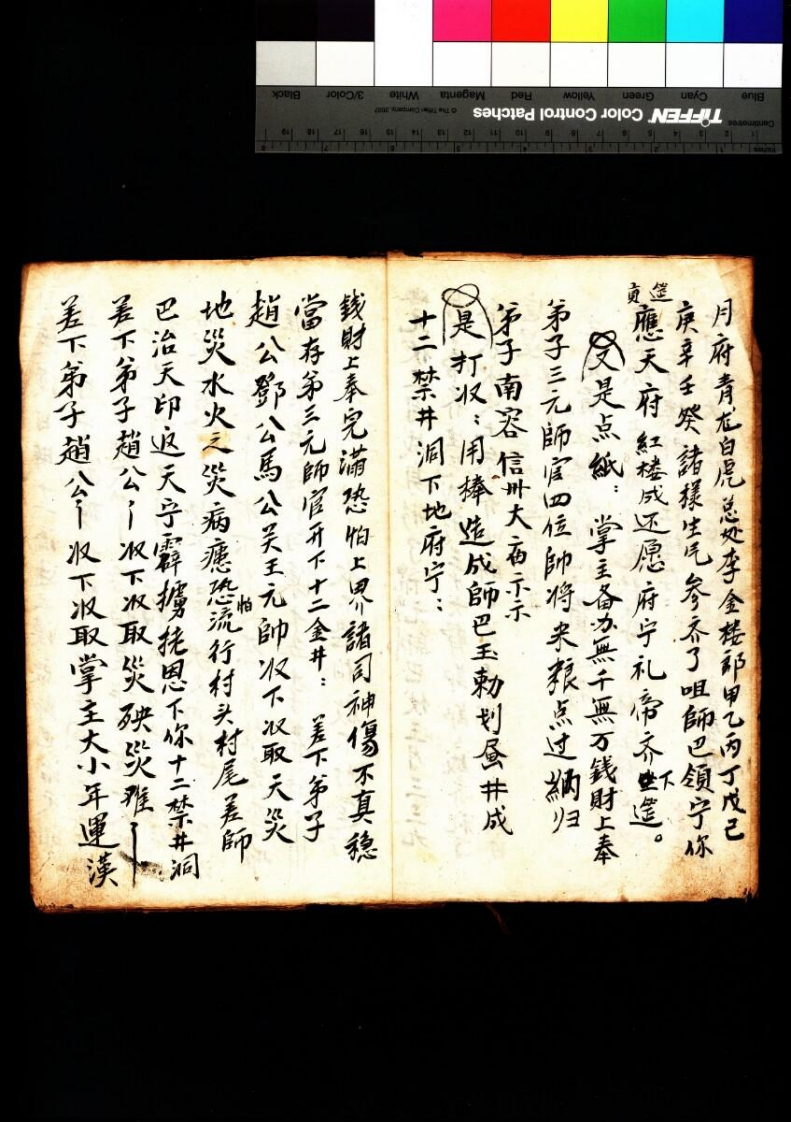 月府青龙白虎总处李金楼部甲乙丙丁戊己
庚辛壬癸諸樣生气参齐了咀師巴領宁你
貢筵
應天府紅楼成还愿府宁礼帝齐坐下筵。
又是点紙：掌主备办無千無万錢財上奉
弟子三元師官四位帥将米粮点过納归
弟子南容信州大庙示示
是打収：用棒造成師巴玉勅划屋井成
十二禁井洞下地府宁：
錢財上奉完滿恐怕上界諸司神傷不真穏
當存弟三元師官开下十二金井：差下弟子
趙公鄧公馬公关王元帥収下収取天災
地災水火之災病瘧恐怕流行村头村尾差師
巴治天印返天宁霹擄拢恩下你十二禁井洞
差下弟子趙公収下収取災殃災难
差下弟子趙公収下収取掌主大小年運漢
TIFFEN Color Control Patches
© The Tiffen Company, 2007
Centimetres
Inches
Blue Cyan Green Yellow Red Magenta White 3/Color Black